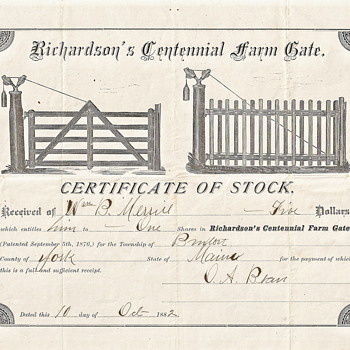 Richardson's Centennial Farm Gate.
CERTIFICATE OF STOCK.
Received of Wm B. Merrill — Five Dollars
which entitles him to — One Shares in Richardson's Centennial Farm Gate
(Patented September 5th, 1876,) for the Township of
County of York State of Maine for the payment of which
this is a full and sufficient receipt. O. A. Bean
Dated this 10 day of Oct 1882